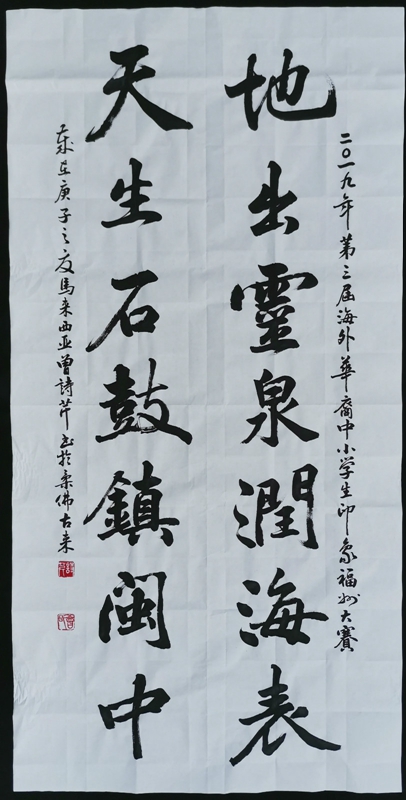 二〇一九年第三届海外華裔中小学生印象福州大赛
地出靈泉潤海表
天生石鼓鎮閩中
歲在庚子之夏馬来西亚曾詩芹书於柔佛古来